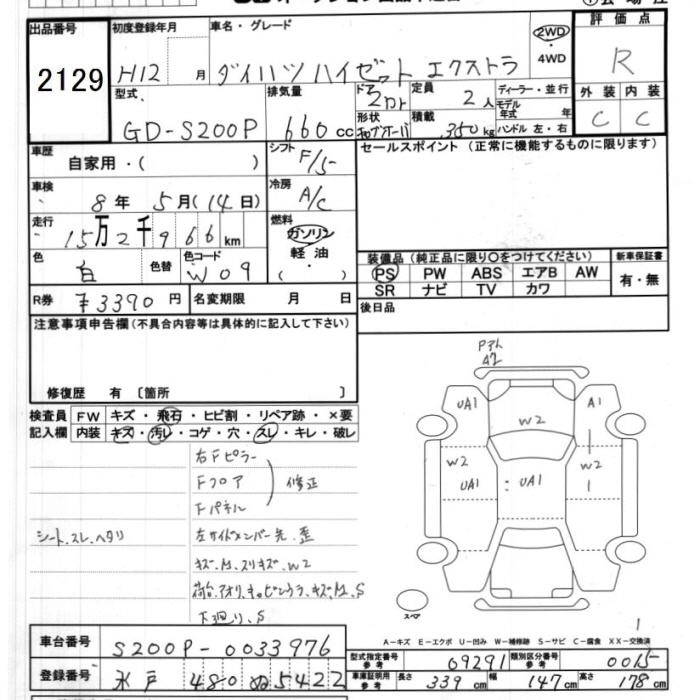 出品番号 2129
初度登録年月 H12 月
車名・グレード ダイハツ ハイゼット エクストラ
2WD・4WD
評価点 R
外装 内装
C C
型式 GD-S200P
排気量 660 cc
ドア 2ドア
形状
定員 2人
積載 350 kg
ディーラー・並行
モデル年式 年
ハンドル 左・右
車歴 自家用・( )
シフト F/5
セールスポイント (正常に機能するものに限ります)
車検 8年 5月(14日)
冷房 A/C
走行 15万2千966km
燃料 ガソリン 軽油・( )
色 白 色替 色コード W09
装備品 (純正品に限り○をつけてください)
新車保証書
PS PW ABS エアB AW
有・無
SR ナビ TV カワ
R券 〒3390円 名変期限 月 日
後日品
注意事項申告欄(不具合内容等は具体的に記入して下さい)
修復歴 有 〔箇所 〕
検査員 FW キズ・飛石・ヒビ割・リペア跡・×要
記入欄 内装 キズ・汚レ・コゲ・穴・スレ・キレ・破レ
右Fピラー
Fフロア 修正
Fパネル
シート.スレ.ヘタリ
左サイドメンバー先.歪
キズ.M.スリキズ.W2
下廻り.S
A2
UA1 A1
W2
W2 W2
UA1 UA1
スペア
A-キズ E-エクボ U-凹み W-補修跡 S-サビ C-腐食 XX-交換済
車台番号 S200P-0033976
型式指定番号 参考 09291 類別区分番号 参考 0015
登録番号 水戸 480 ぬ5422
車庫証明用 参考 長さ 339cm 幅 147cm 高さ 178cm